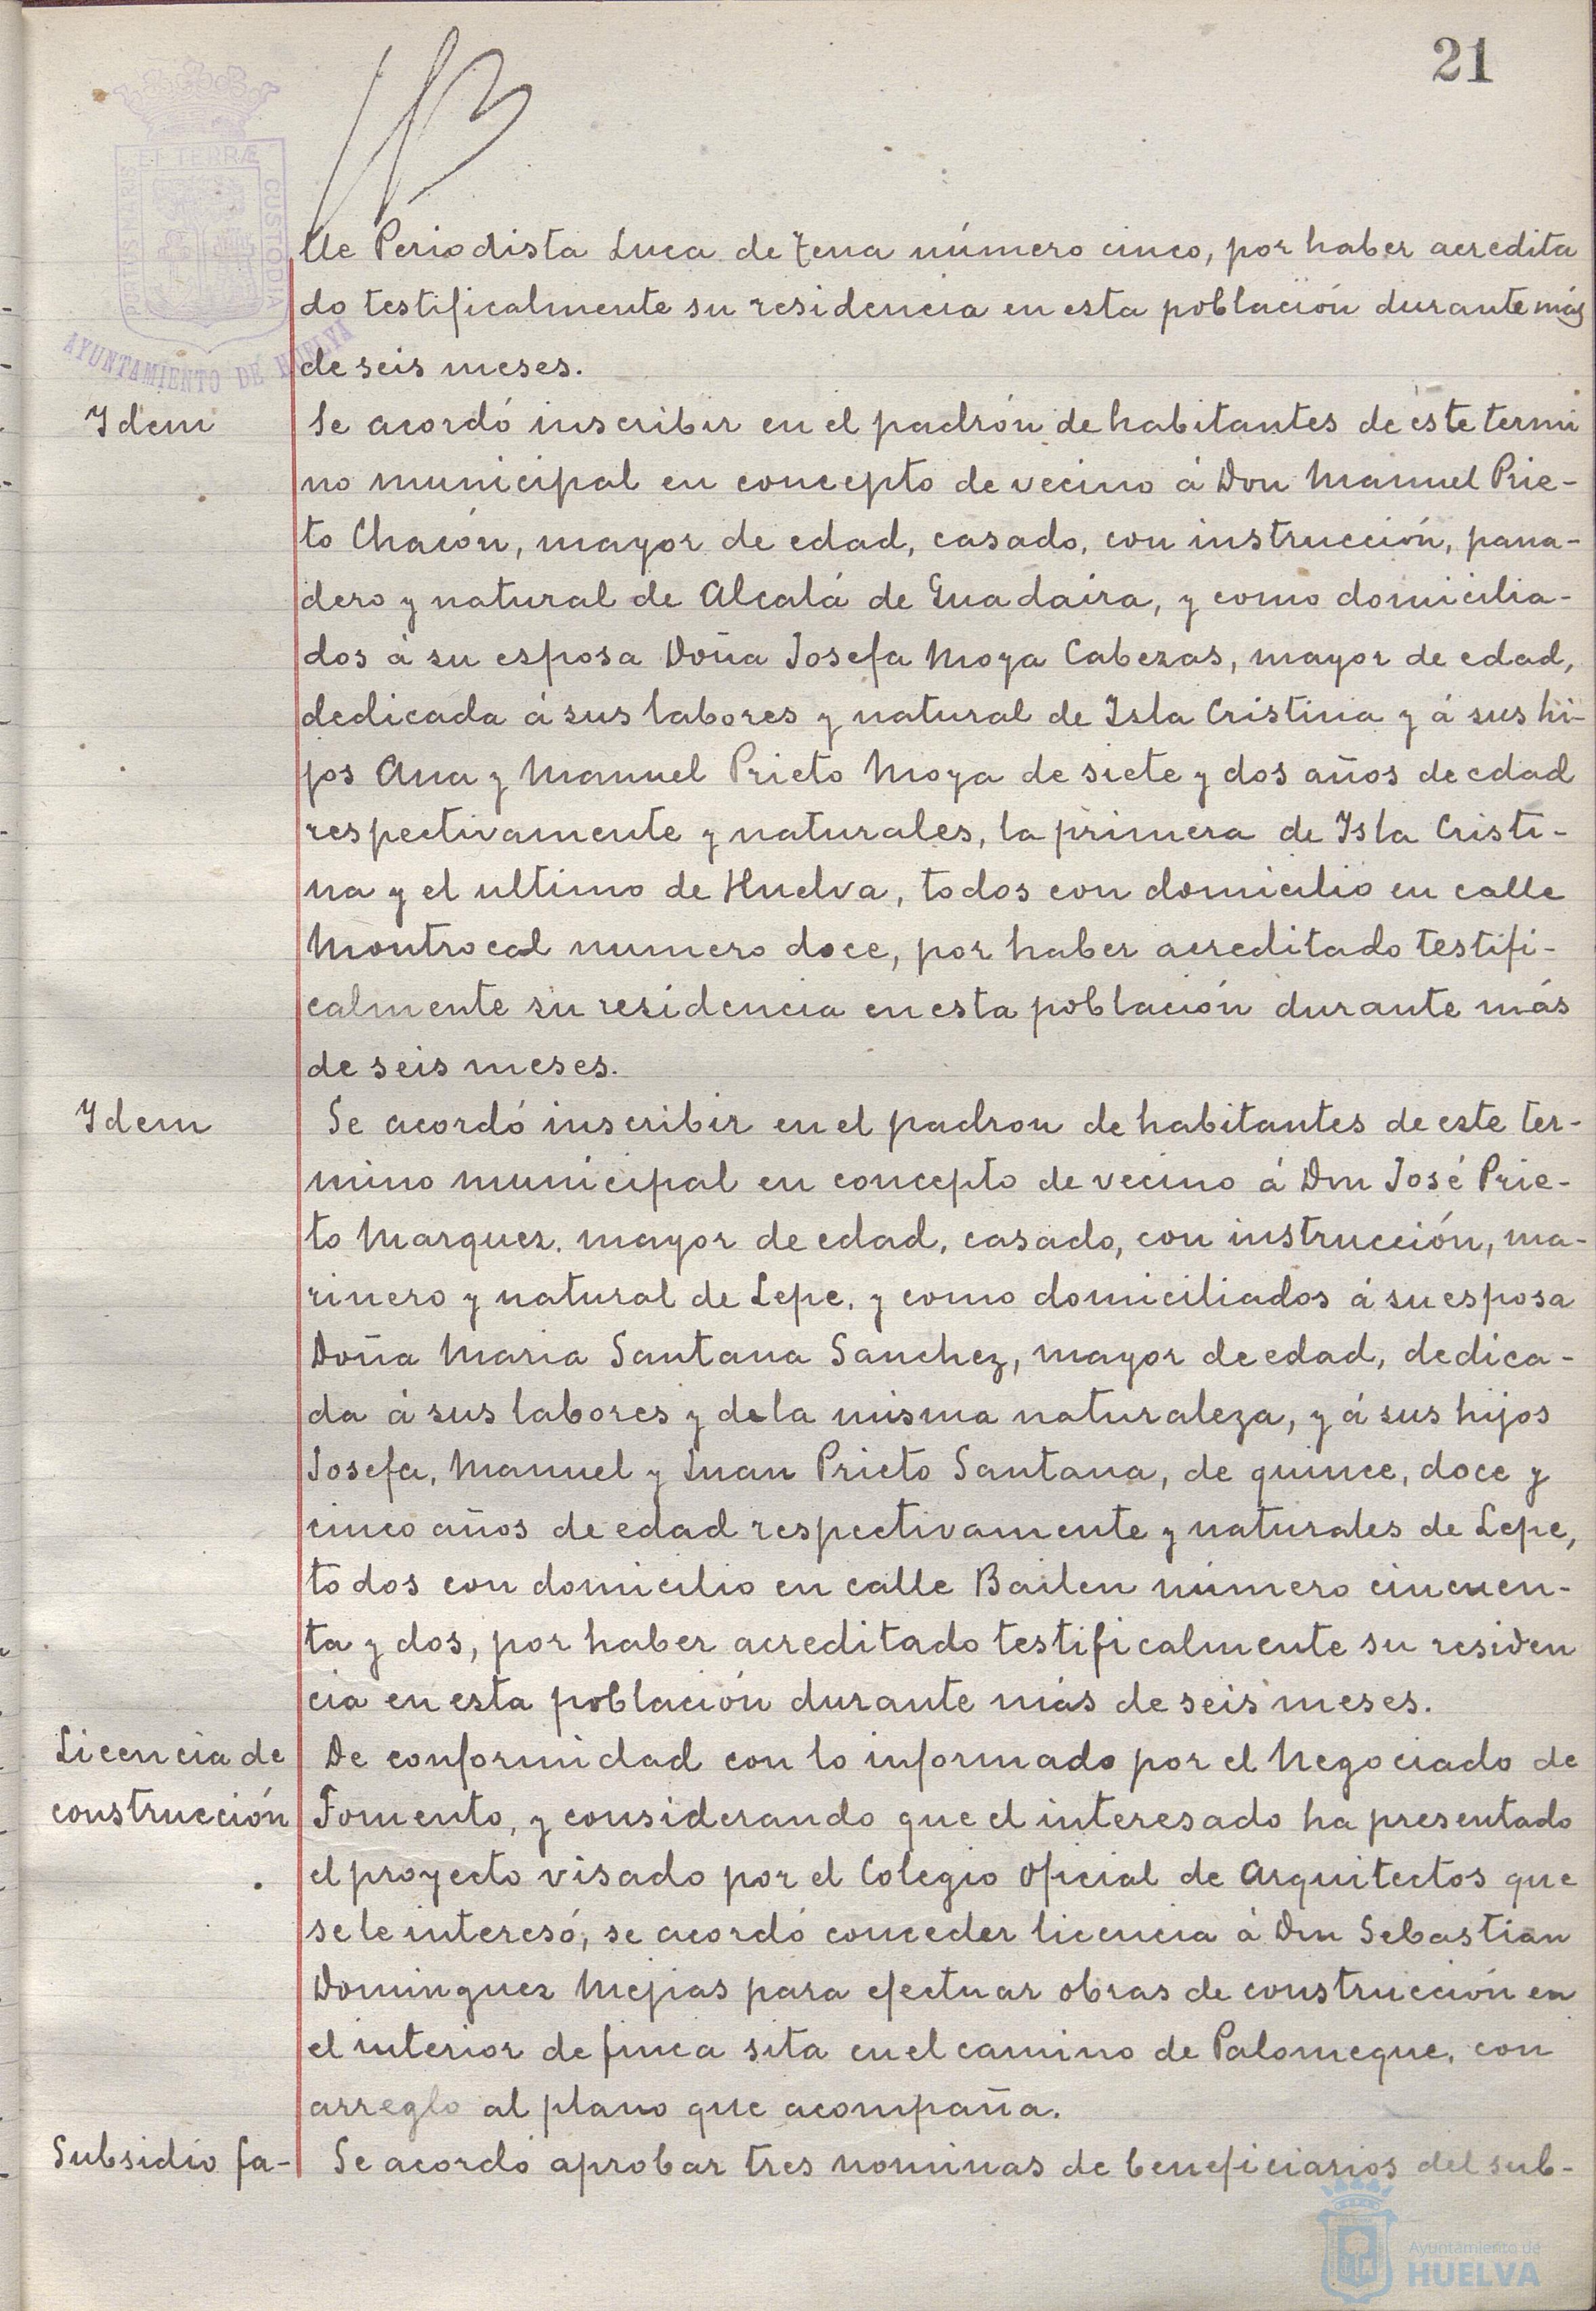 21
ET TERRÆ
PORTUS MARIS
CUSTODIA
AYUNTAMIENTO DE HUELVA
lle Periodista Luca de Tena número cinco, por haber acredita
do testificalmente su residencia en esta población durante más
de seis meses.
Idem
Se acordó inscribir en el padrón de habitantes de este termi
no municipal en concepto de vecino á Don Manuel Prie-
to Chacón, mayor de edad, casado, con instrucción, pana-
dero y natural de Alcalá de Guadaira, y como domicilia-
dos á su esposa Doña Josefa Moya Cabezas, mayor de edad,
dedicada á sus labores y natural de Isla Cristina y á sus hi-
jos Ana y Manuel Prieto Moya de siete y dos años de edad
respectivamente y naturales, la primera de Isla Cristi-
na y el ultimo de Huelva, todos con domicilio en calle
Montrocal numero doce, por haber acreditado testifi-
calmente su residencia en esta población durante más
de seis meses.
Idem
Se acordó inscribir en el padron de habitantes de este ter-
mino municipal en concepto de vecino á Don José Prie-
to Marquez. mayor de edad, casado, con instrucción, ma-
rinero y natural de Lepe, y como domiciliados á su esposa
Doña Maria Santana Sanchez, mayor de edad, dedica-
da á sus labores y de la misma naturaleza, y á sus hijos
Josefa, Manuel y Juan Prieto Santana, de quince, doce y
cinco años de edad respectivamente y naturales de Lepe,
todos con domicilio en calle Bailen número cincuen-
ta y dos, por haber acreditado testificalmente su residen
cia en esta población durante más de seis meses.
Licencia de
construcción
De conformidad con lo informado por el Negociado de
Fomento, y considerando que el interesado ha presentado
el proyecto visado por el Colegio Oficial de Arquitectos que
se le interesó, se acordó conceder licencia á Don Sebastian
Dominguez Mejias para efectuar obras de construcción en
el interior de finca sita en el camino de Palomeque, con
arreglo al plano que acompaña.
Subsidio fa-
Se acordó aprobar tres nominas de beneficiarios del sub-
Ayuntamiento de
HUELVA